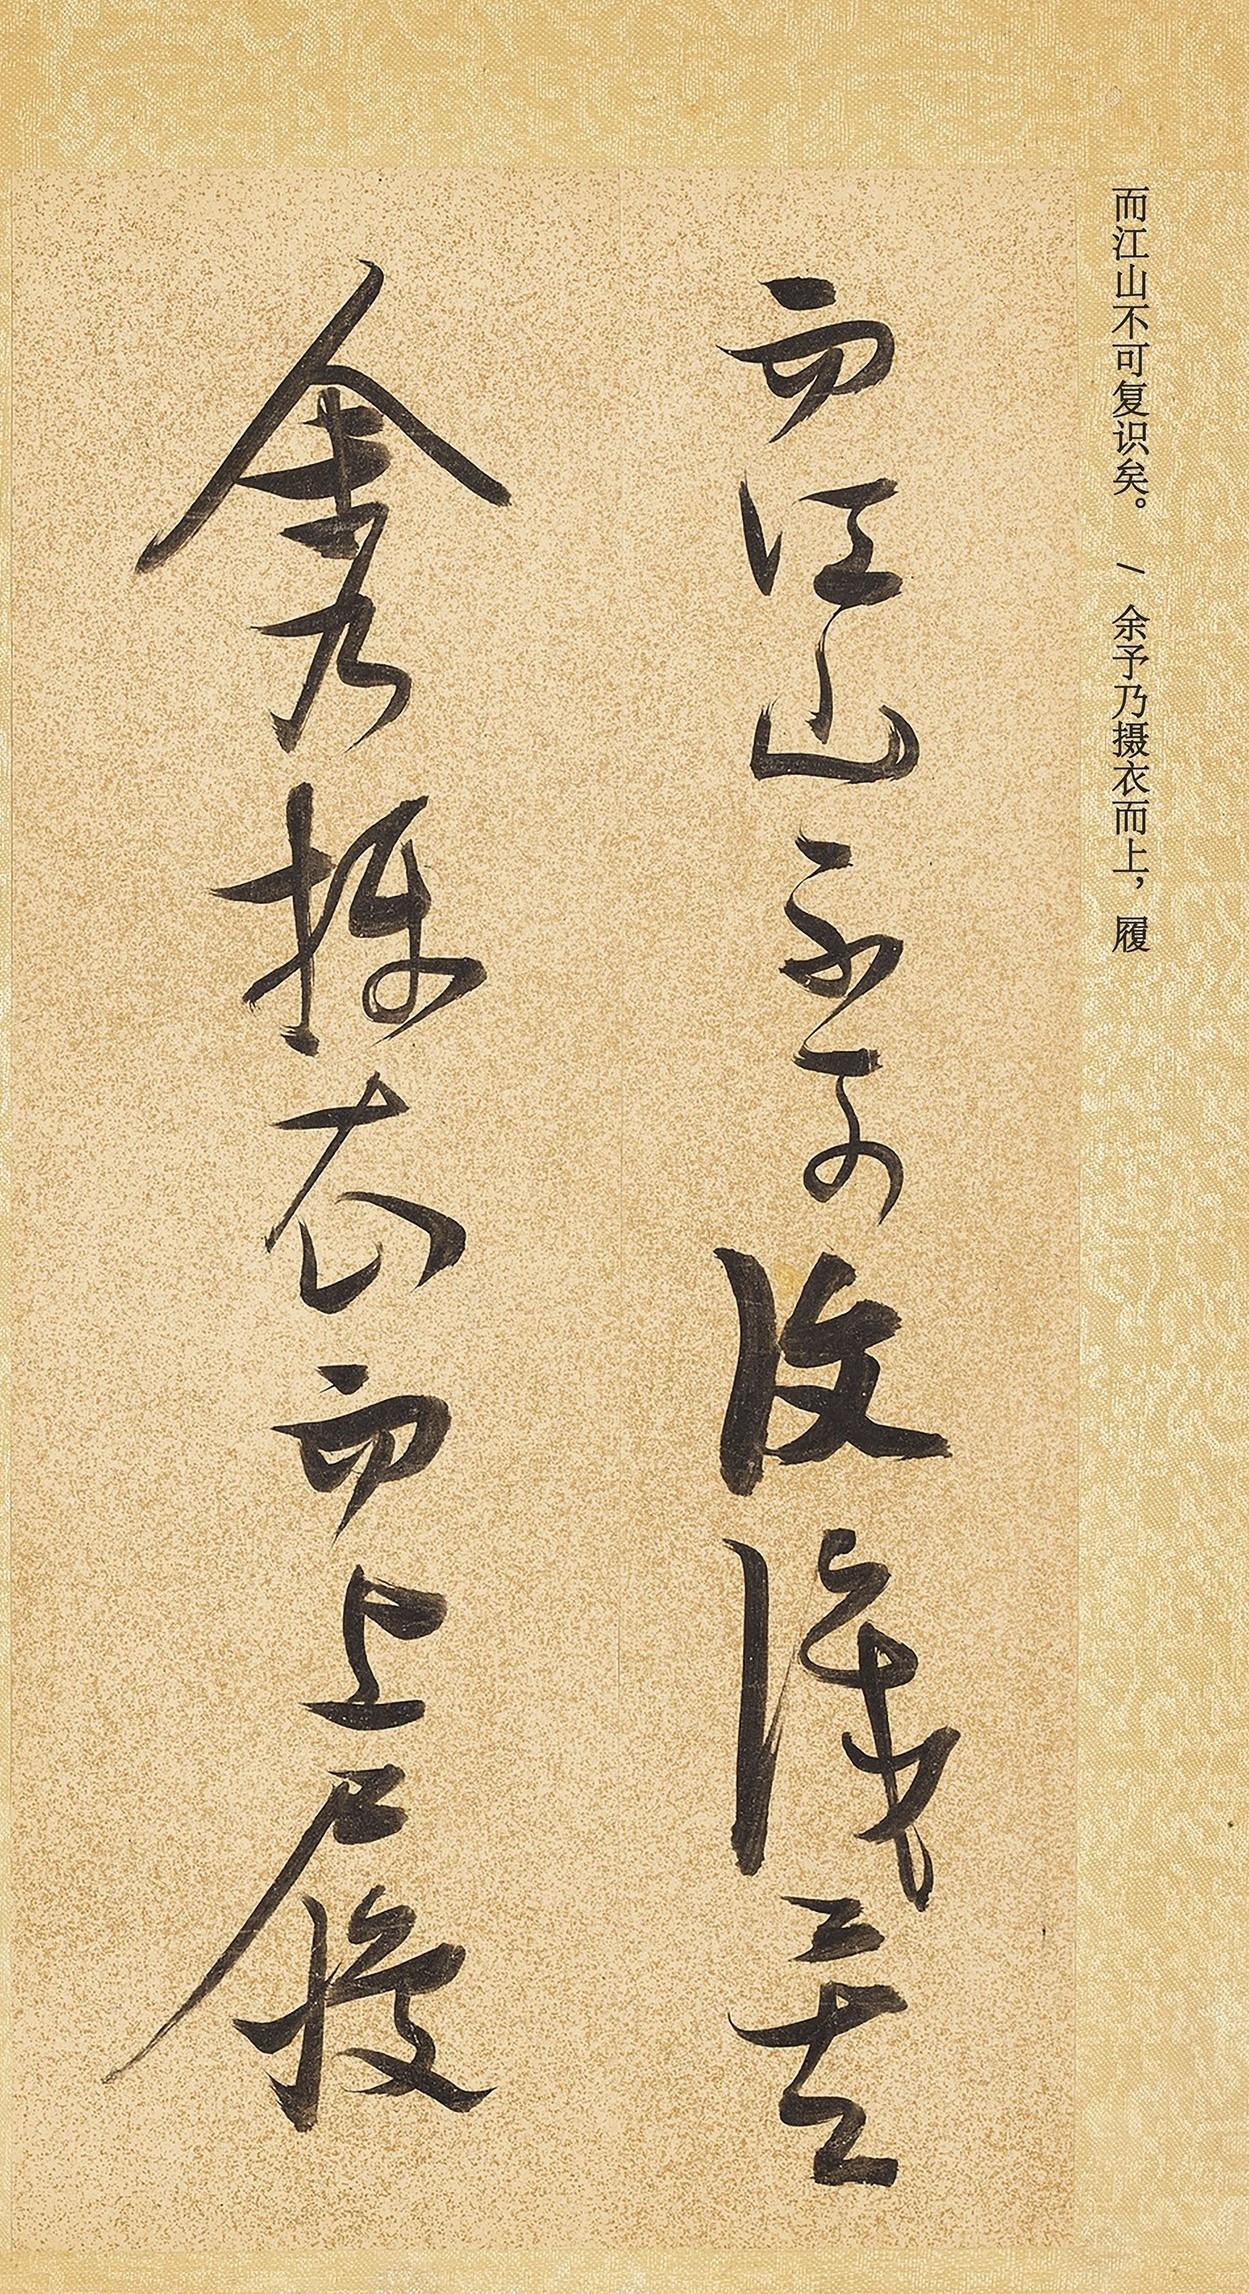 而江山不可复识矣。 / 余予乃摄衣而上，履
而江山不可復識矣
余乃攝衣而上履